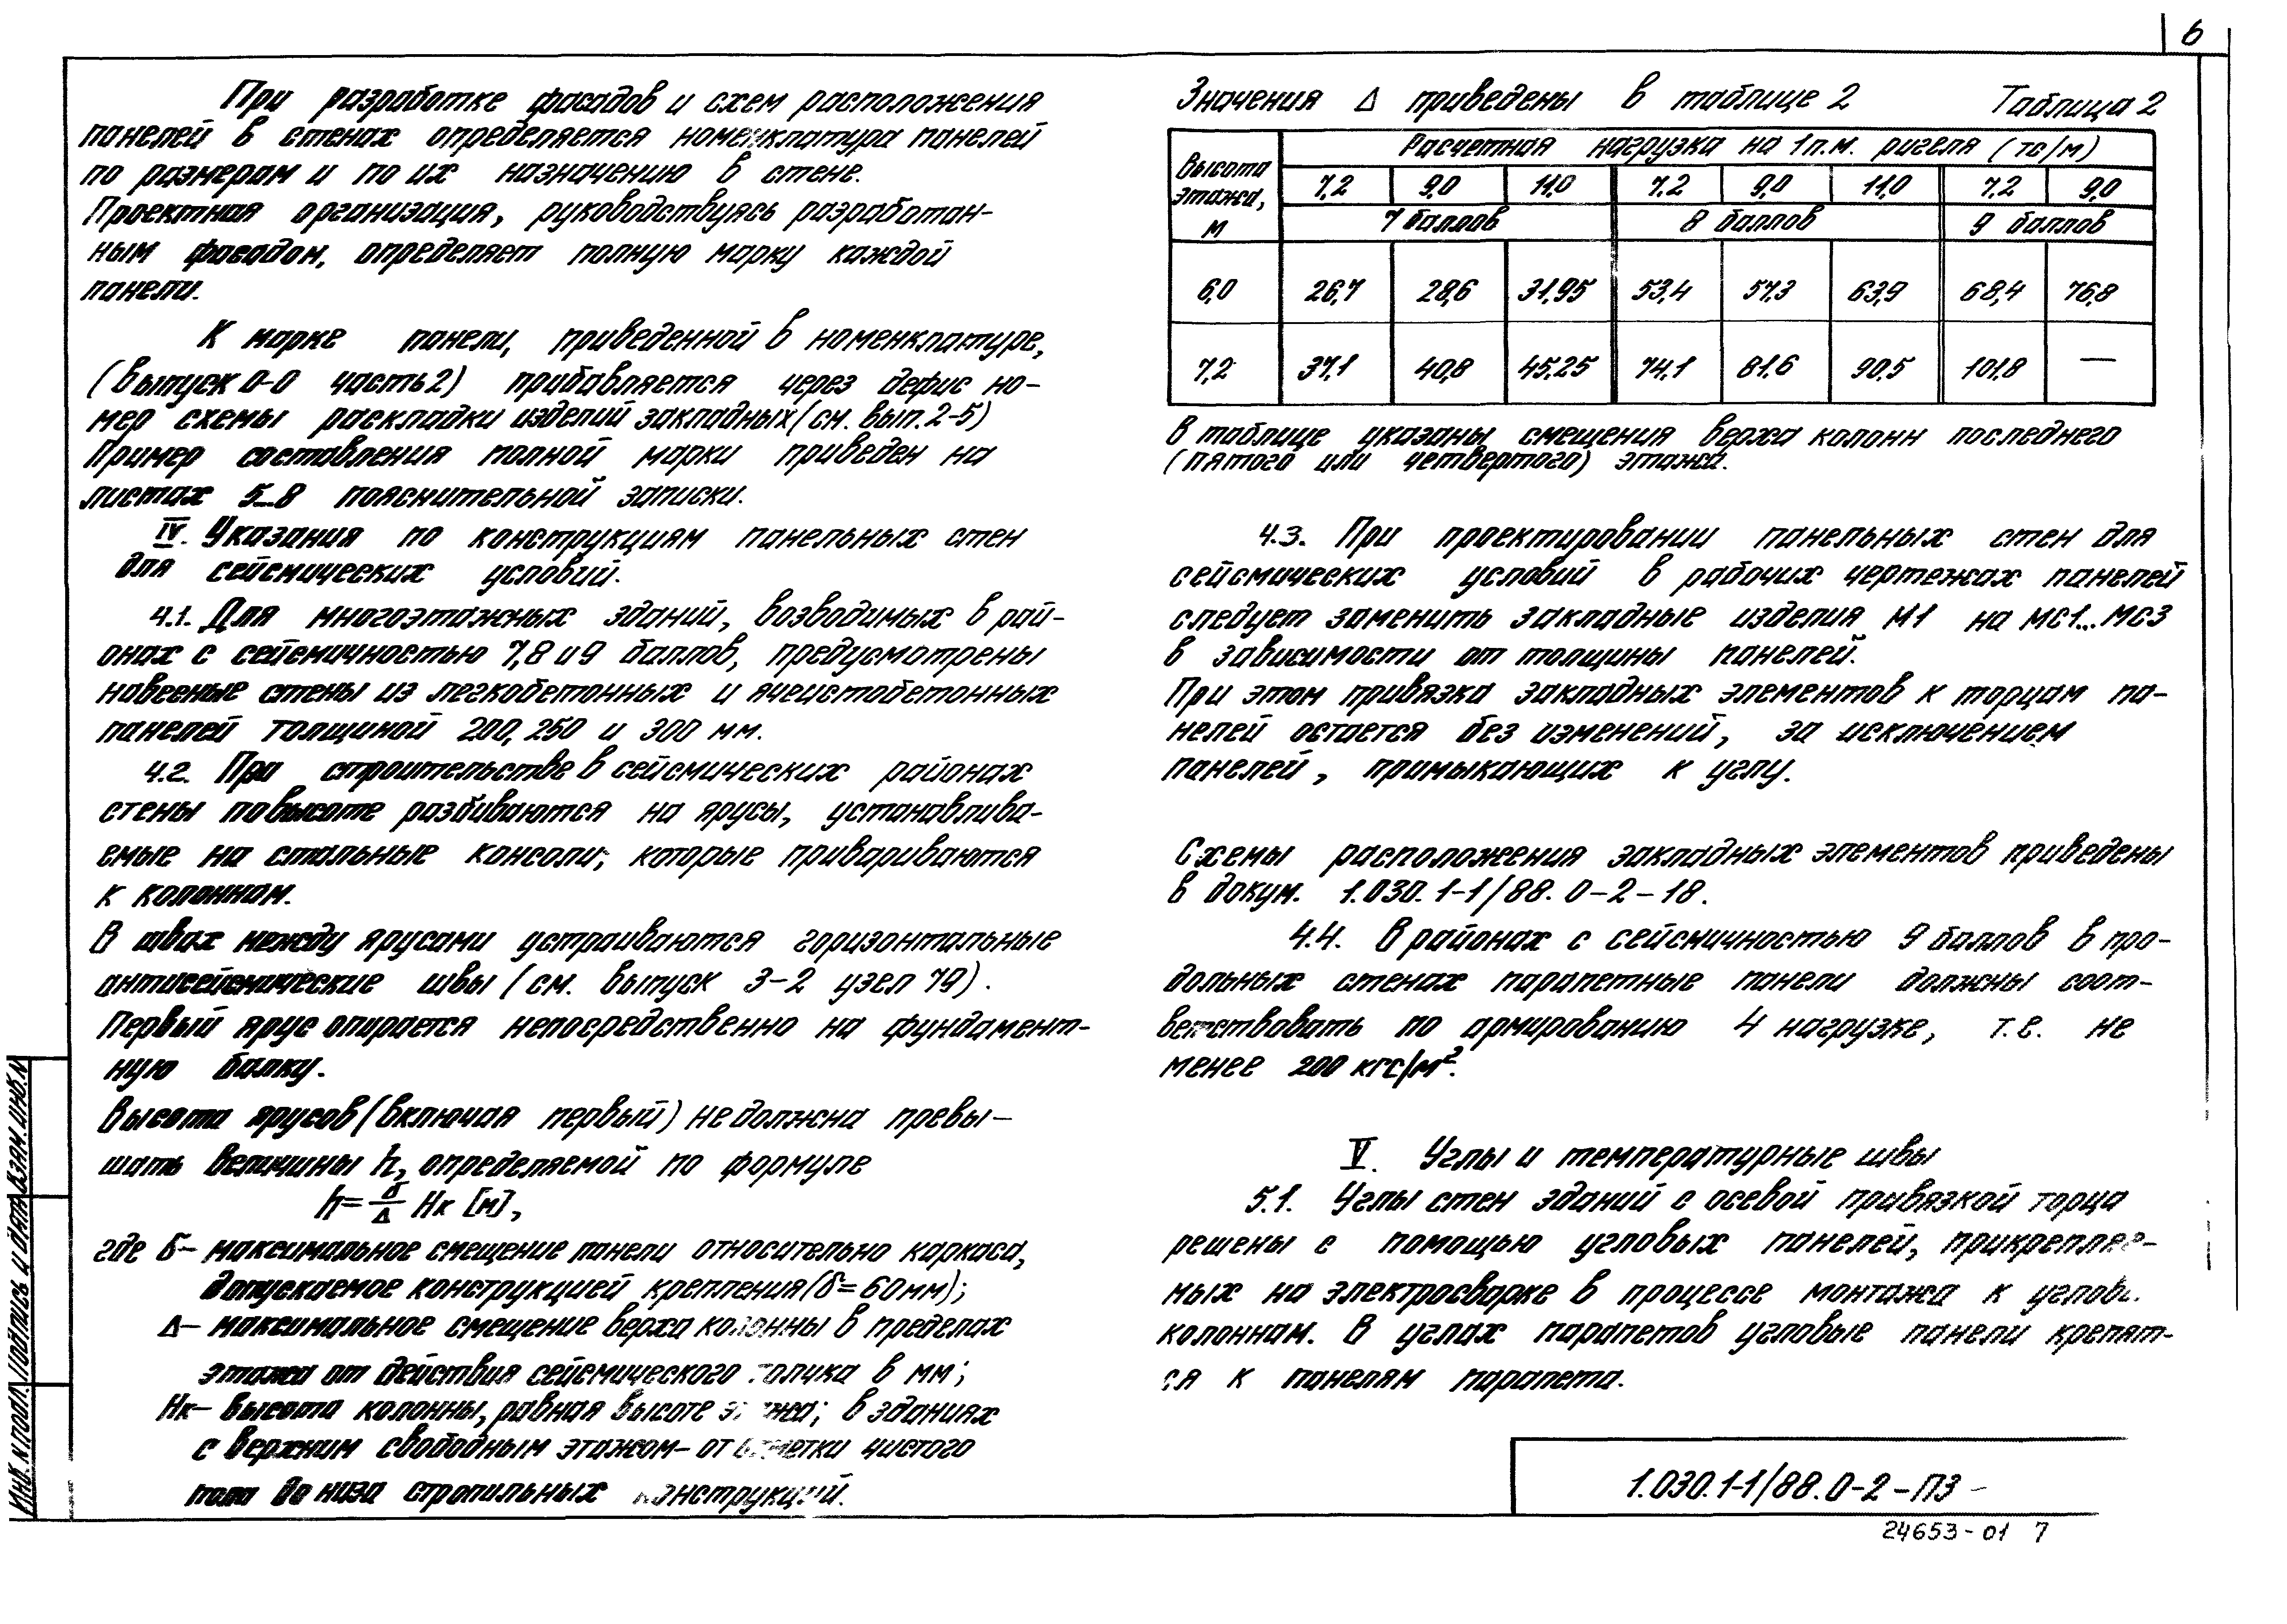 6
При разработке фасадов и схем расположения
панелей в стенах определяется номенклатура панелей
по размерам и по их назначению в стене.
Проектная организация, руководствуясь разработан-
ным фасадом, определяет полную марку каждой
панели.
К марке панели, приведенной в номенклатуре,
(выпуск 0-0 часть 2) прибавляется через дефис но-
мер схемы раскладки изделий закладных (см. вып. 2-5)
Пример составления полной марки приведен на
листах 5...8 пояснительной записки.
IV. Указания по конструкциям панельных стен
для сейсмических условий.
4.1. Для многоэтажных зданий, возводимых в рай-
онах с сейсмичностью 7,8 и 9 баллов, предусмотрены
навесные стены из легкобетонных и ячеистобетонных
панелей толщиной 200, 250 и 300 мм.
4.2. При строительстве в сейсмических районах
стены по высоте разбиваются на ярусы, устанавлива-
емые на стальные консоли, которые привариваются
к колоннам.
В швах между ярусами устраиваются горизонтальные
антисейсмические швы (см. выпуск 3-2 узел 79).
Первый ярус опирается непосредственно на фундамент-
ную балку.
Высота ярусов (включая первый) не должна превы-
шать величины h, определяемой по формуле
h = δ/Δ Нк [м],
где δ – максимальное смещение панели относительно каркаса,
допускаемое конструкцией крепления (δ = 60 мм);
Δ – максимальное смещение верха колонны в пределах
этажа от действия сейсмического толчка в мм;
Нк – высота колонны, равная высоте этажа; в зданиях
с верхним свободным этажом – от отметки чистого
пола до низа стропильных конструкций.
Значения Δ приведены в таблице 2 Таблица 2
Высота этажа, м
Расчетная нагрузка на 1 п.м. ригеля (тс/м)
7,2 9,0 11,0 7,2 9,0 11,0 7,2 9,0
7 баллов 8 баллов 9 баллов
6,0 26,7 28,6 31,95 53,4 57,3 63,9 68,4 76,8
7,2 37,1 40,8 45,25 74,1 81,6 90,5 101,8 —
В таблице указаны смещения верха колонн последнего
(пятого или четвертого) этажа.
4.3. При проектировании панельных стен для
сейсмических условий в рабочих чертежах панелей
следует заменить закладные изделия М1 на МС1...МС3
в зависимости от толщины панелей.
При этом привязка закладных элементов к торцам па-
нелей остается без изменений, за исключением
панелей, примыкающих к углу.
Схемы расположения закладных элементов приведены
в докум. 1.030.1-1/88.0-2-18.
4.4. В районах с сейсмичностью 9 баллов в про-
дольных стенах парапетные панели должны соот-
ветствовать по армированию 4 нагрузке, т.е. не
менее 200 кгс/м².
V. Углы и температурные швы
5.1. Углы стен зданий с осевой привязкой торца
решены с помощью угловых панелей, прикрепляе-
мых на электросварке в процессе монтажа к углов.
колоннам. В углах парапетов угловые панели крепят-
ся к панелям парапета.
Инв. N подл. Подпись и дата Взам. инв. N
1.030.1-1/88.0-2-ПЗ
24653-01 7